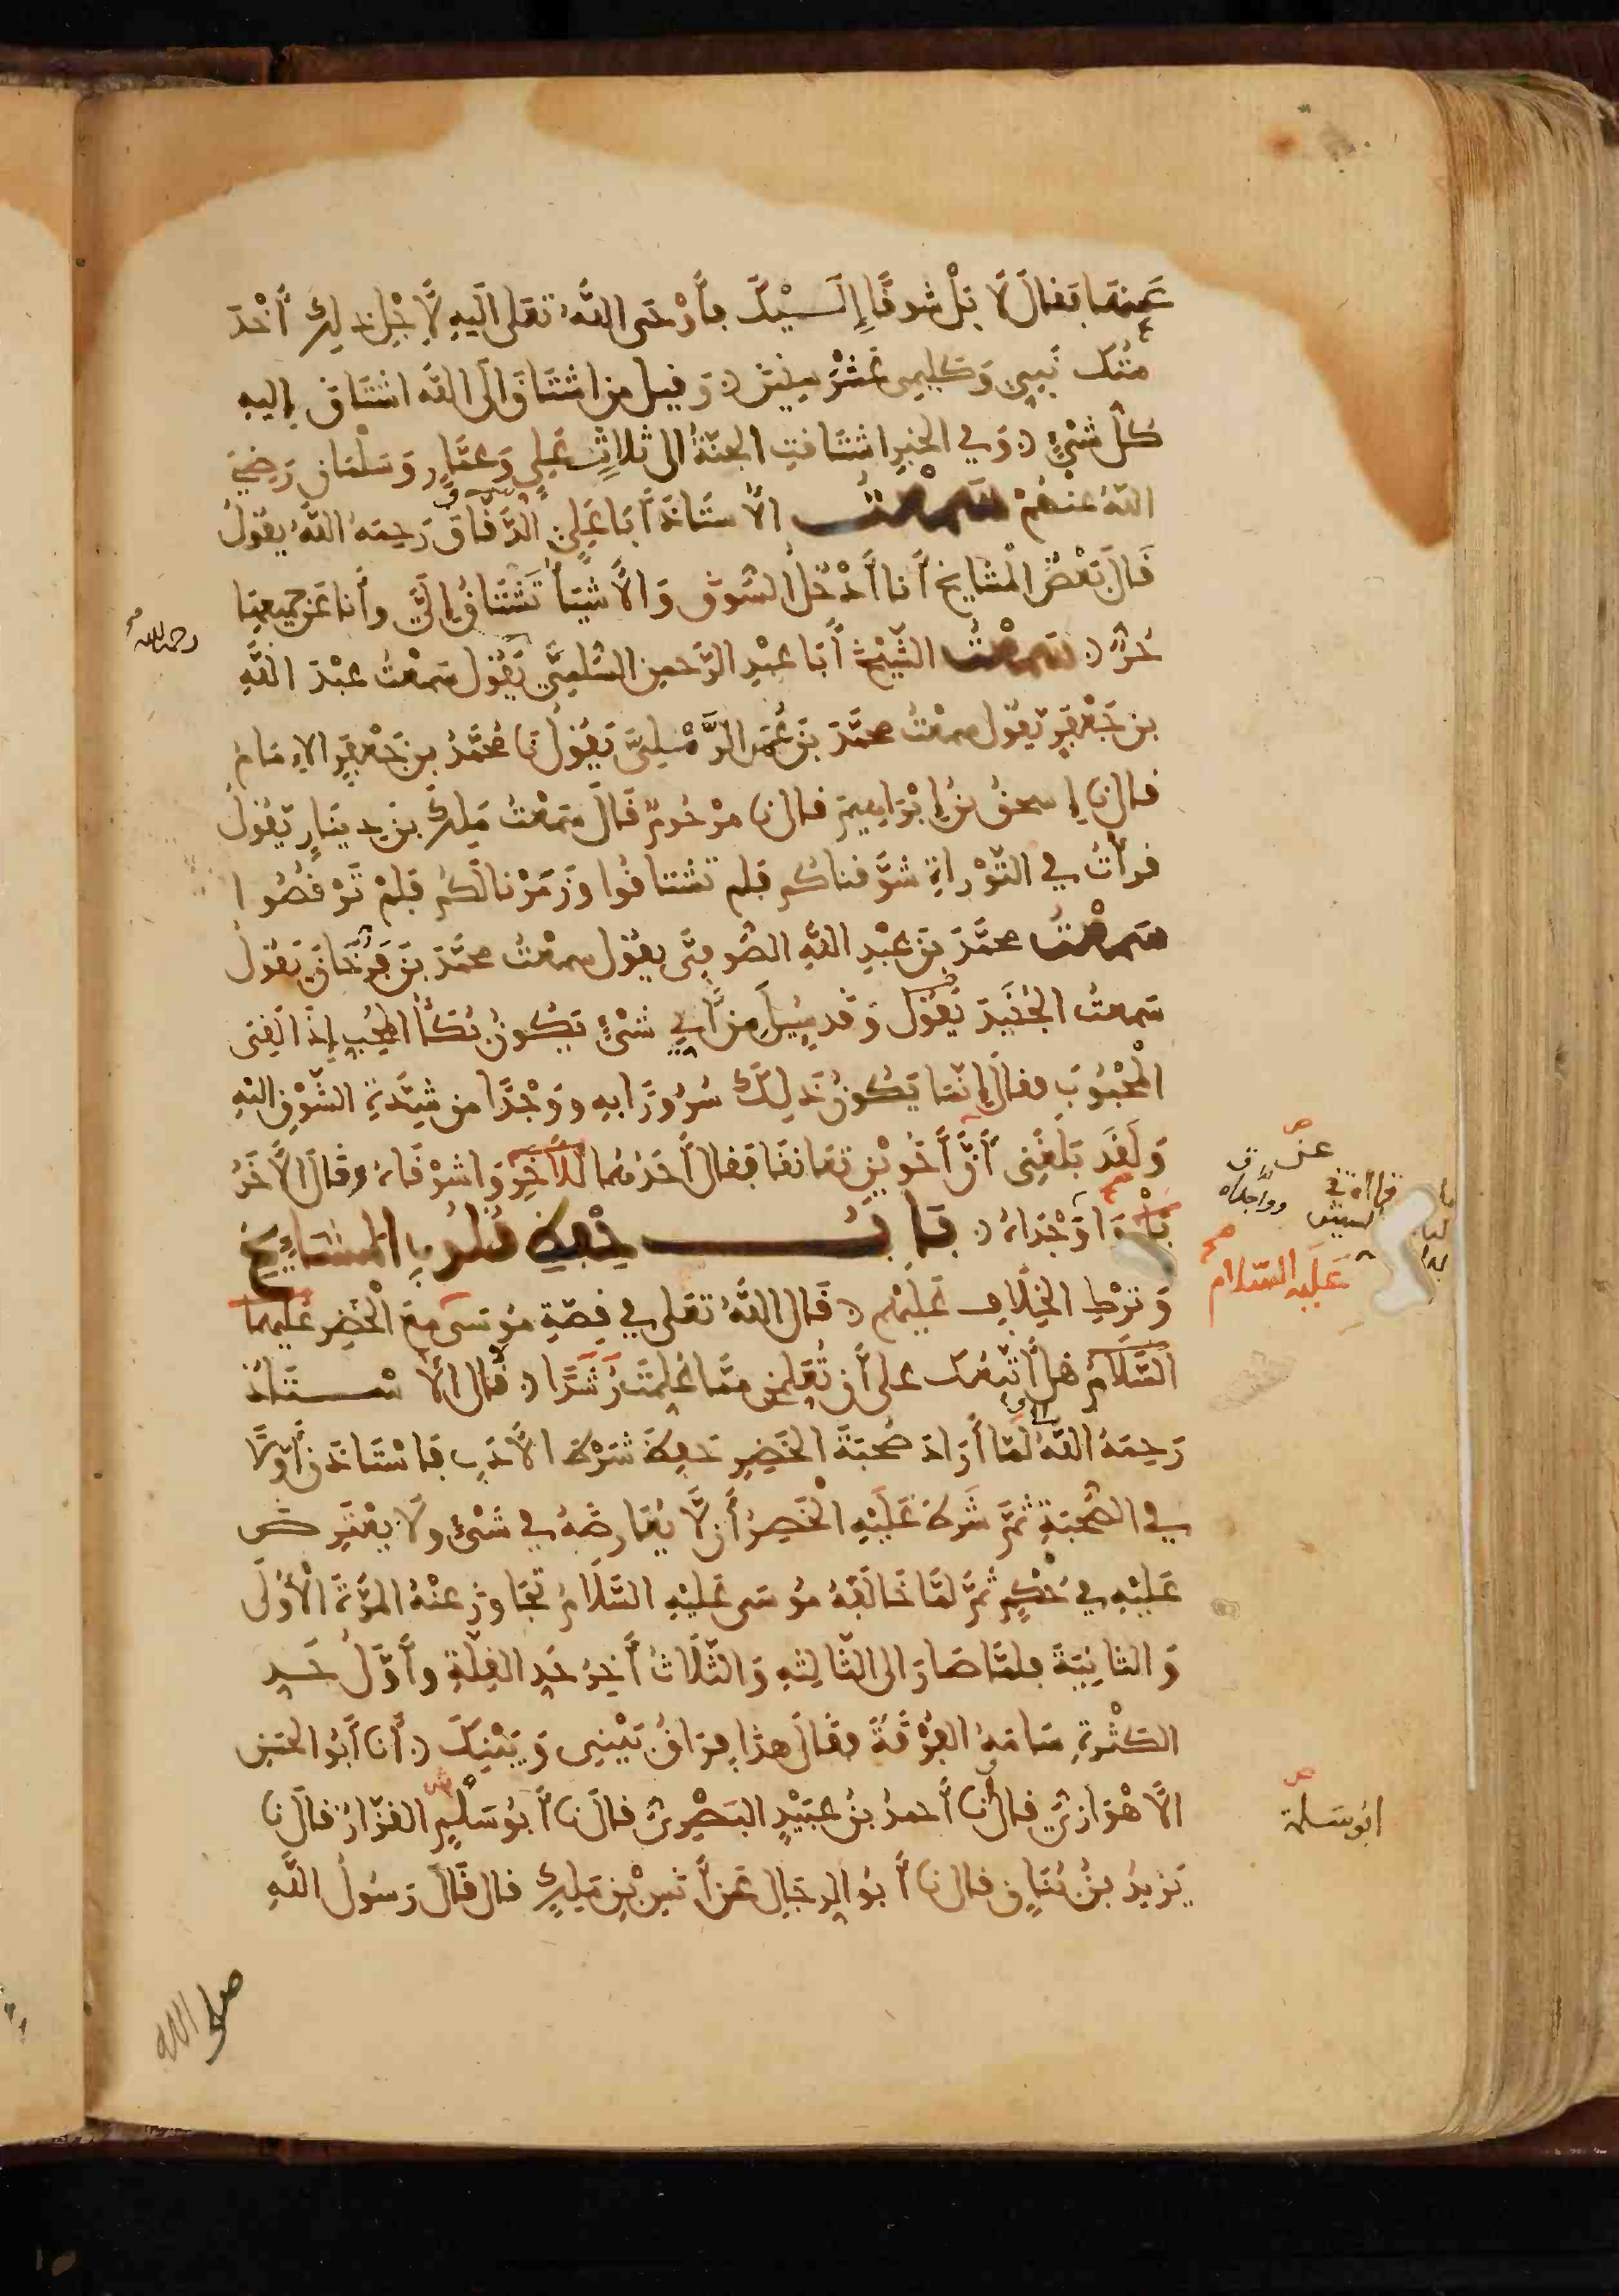 عنهما فقال لا بل شوقا إليك فأوحى الله تعلى اليه لأجل ذلك أخد
متك نبيي وكليمي عشر سنين وقيل من اشتاق الى الله اشتاق إليه
كل شيء وفي الخبر اشتاقت الجنة الى ثلاث علي وعمار وسلمان رضي
الله عنهم سمعت الأستاذ أبا علي الدقاق رحمه الله يقول
قال بعض المشايخ أنا أدخل السوق والأشيأ تشتاق إلي وأنا عن جميعها
رحمه الله
حر سمعت الشيخ أبا عبد الرحمن السلمي يقول سمعت عبد الله
بن جعفر يقول سمعت محمد بن عمر الرملي يقول نا محمد بن جعفر الإمام
قال نا إسحق بن إبراهيم قال نا مرحوم قال سمعت ملك بن دينار يقول
قرأت في التوراة شوقناكم فلم تشتاقوا وزمرنا لكم فلم ترقصوا
سمعت محمد بن عبد الله الصوفي يقول سمعت محمد بن فرخان يقول
سمعت الجنيد يقول وقد سيل من أي شيء يكون بكأ المحب إذا لقى
المحبوب فقال إنما يكون ذلك سرورا به ووجدا من شدة الشوق اليه
ولقد بلغني أن أخوين تعانقا فقال أحدهما للآخر واشوقاه وقال الآخر
واوجداه باب حفظ قلوب المشايخ
عليه السلام
وترك الخلاف عليهم قال الله تعلى في قصة موسى مع الخضر عليهما
السلام هل أتبعك على أن تعلمن مما علمت رشدا قال الأستاذ
رحمه الله لما أراد صحبة الخضر حفظ شرط الأدب فاستاذن أولا
في الصحبة ثم شرط عليه الخضر أن لا يعارضه في شيء ولا يعترض
عليه في حكم ثم لما خالفه موسى عليه السلام تجاوز عنه المرة الأولى
والثانية فلما صار الى الثالثة والثلاث أخر حد القلة وأول حد
الكثرة سامه الفرقة فقال هذا فراق بيني وبينك أنا أبو الحسن
الأهوازي قال أنا أحمد بن عبيد البصري قال نا أبو سلم القزاز قال نا
ابو سلمة
يزيد بن بنان قال نا أبو الرجال عن أنس بن ملك قال قال رسول الله
صلى الله